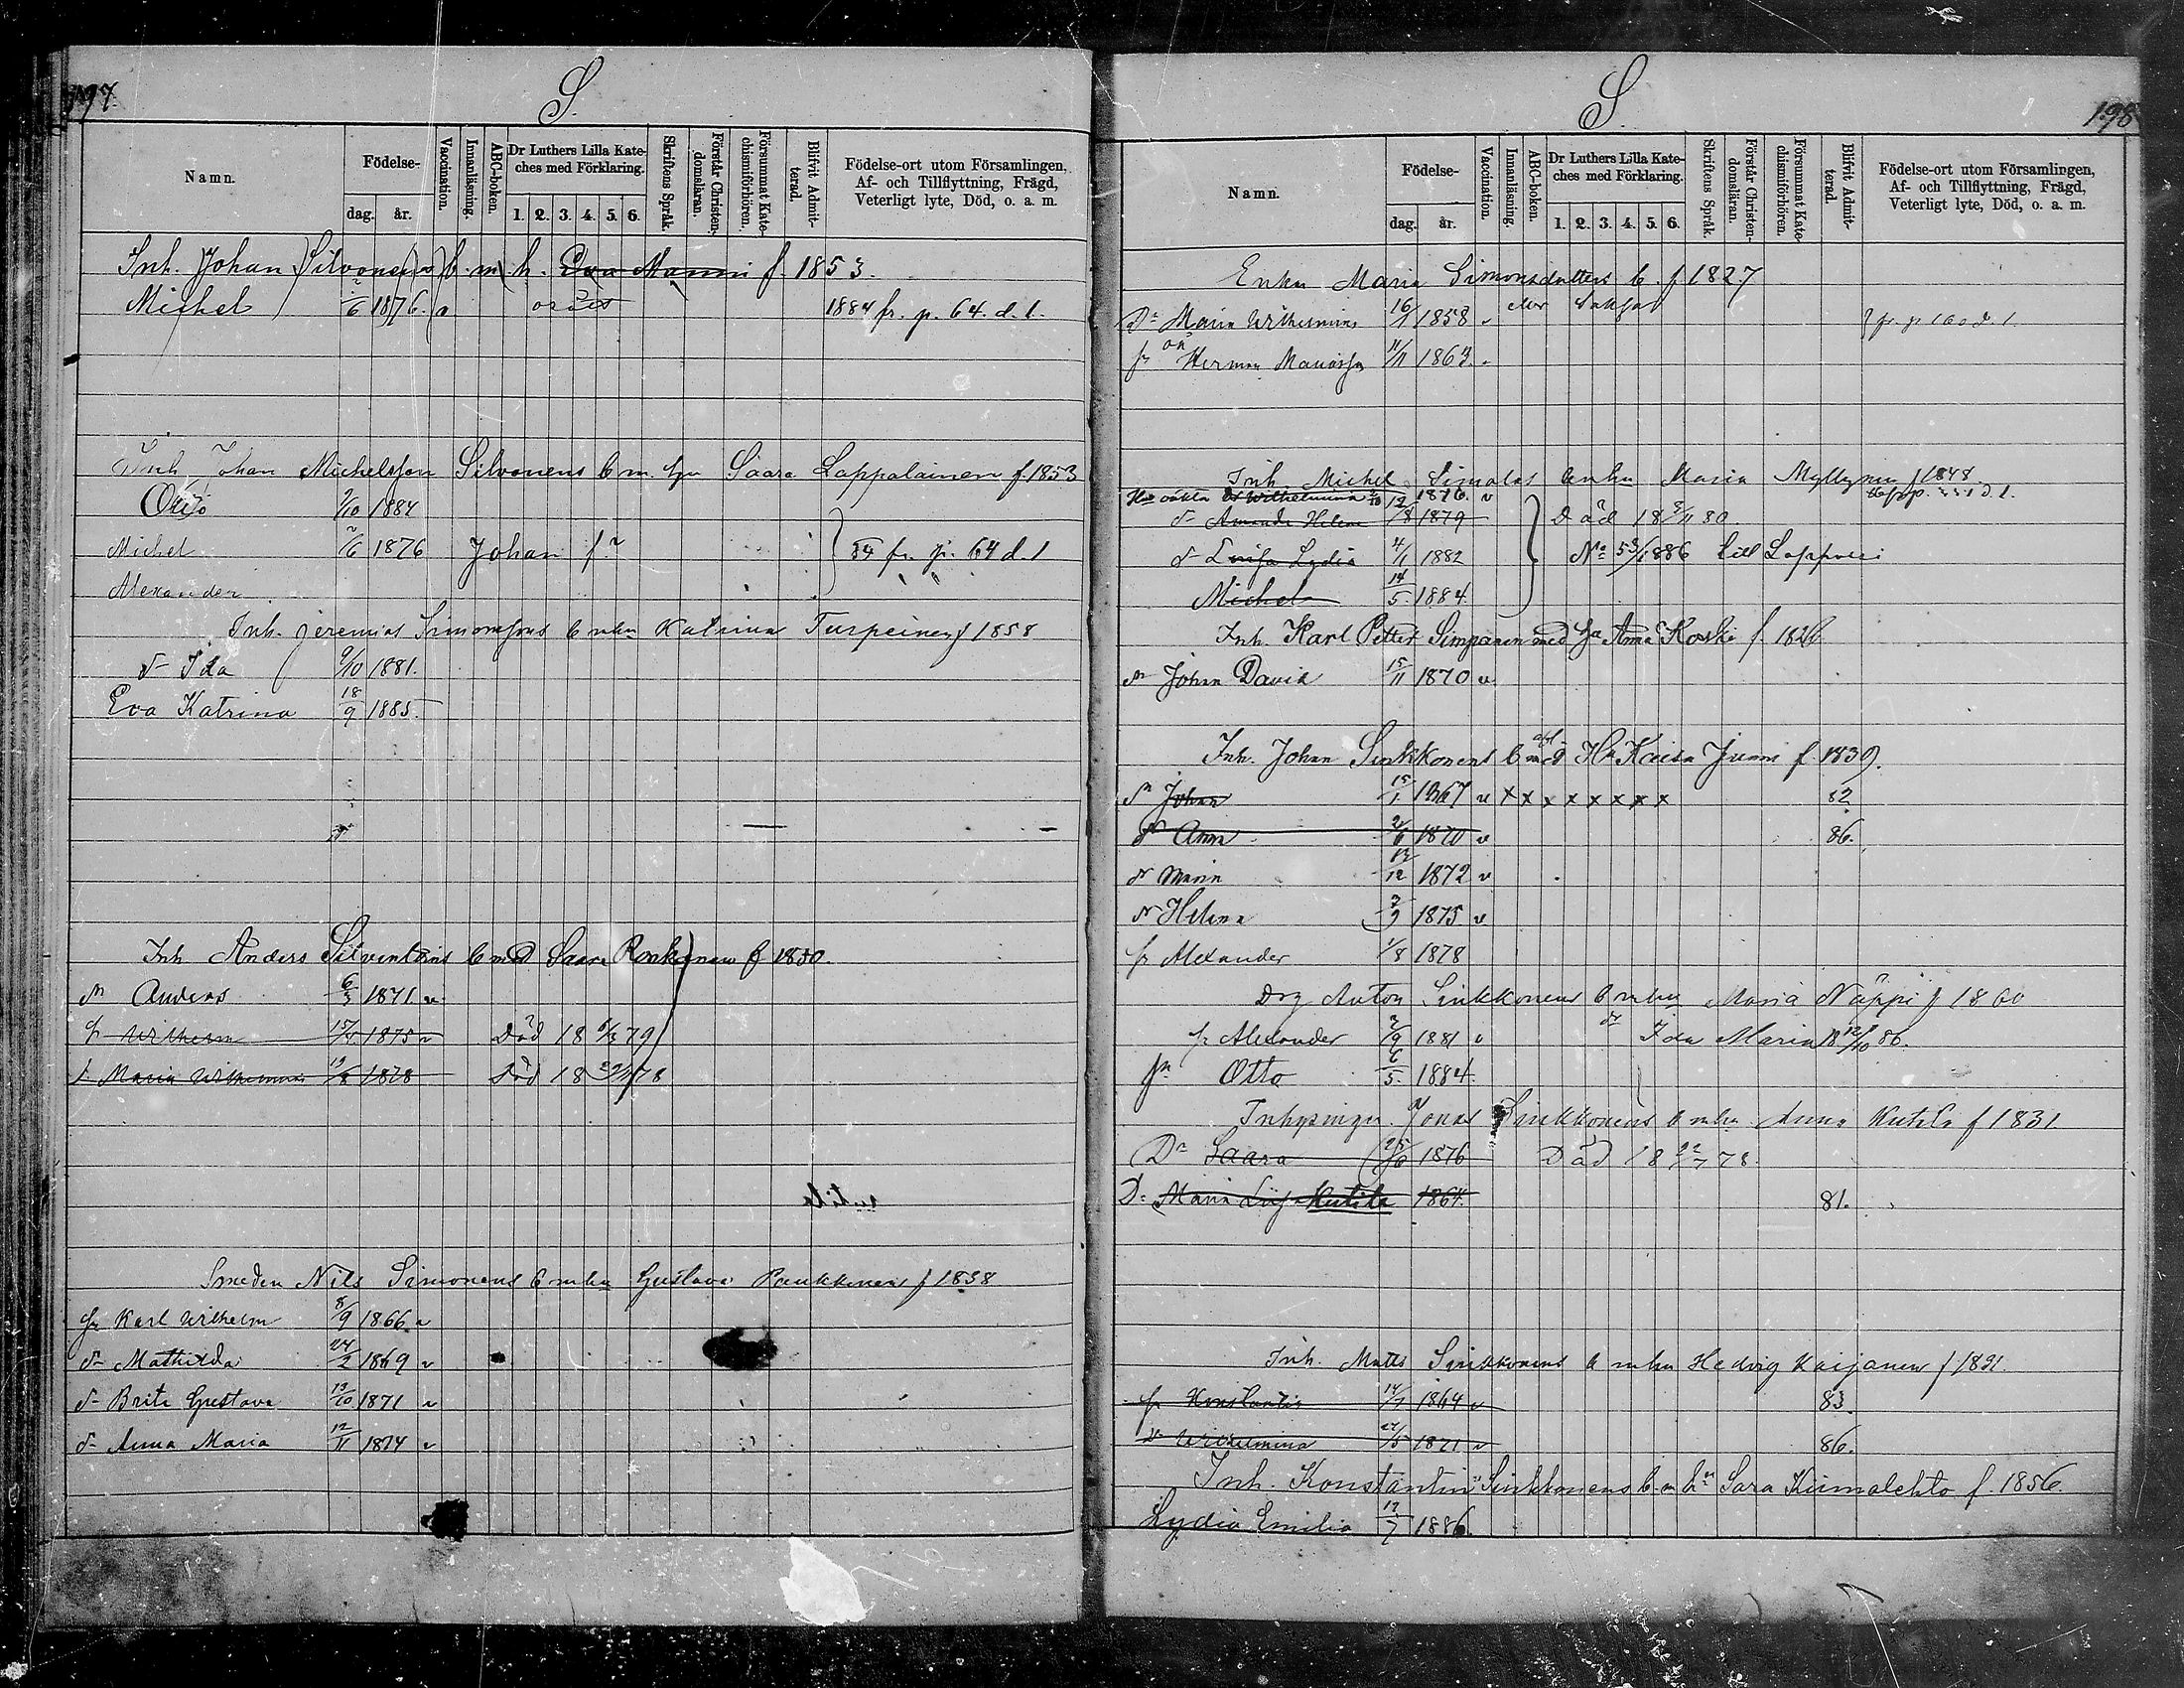 197.
S.
Namn.
Födelse-
dag. år.
Vaccination.
Innanläsning.
ABC-boken.
Dr Luthers Lilla Kate-
ches med Förklaring.
1. 2. 3. 4. 5. 6.
Skriftens Språk.
Förstår Christen-
domsläran.
Försummat Kate-
chismiförhören.
Blifvit Admit-
terad.
Födelse-ort utom Församlingen,
Af- och Tillflyttning, Frägd,
Veterligt lyte, Död, o. a. m.
Inh. Johan Silvonens b. m. h. Eva Manni f 1853.
Michel 2/6 1876. v 1884 fr. p. 64. d. 1.
Inh Johan Michelsson Silvonens b m. hu Saara Lappalainen f. 1853
Otto 9/10 1884
Michel 2/6 1876 Johan f 84 fr. p. 64 d. 1
Alexander
Inh. Jeremias Simonsons b m hu Katrina Turpeinen f 1858
dr Ida 9/10 1881.
Eva Katrina 18/9 1885.
Inh Anders Silventoins b med Saara Ronkanen f 1830.
sn Anders 6/3 1871 v.
sn Wilhelm 15/4 1875 v Död 18 6/3 79
d. Maria Wilhelmina 19/8 1878 Död 18 78
Smeden Nils Simonens b m hu Gustava Paukkunen f 1838
sn Karl Wilhelm 8/9 1866 v
dr Mathilda 24/2 1869 v
dr Brita Gustava 13/10 1871 v
dr Anna Maria 12/11 1874 v
S
198
Namn.
Födelse-
dag. år.
Vaccination.
Innanläsning.
ABC-boken.
Dr Luthers Lilla Kate-
ches med Förklaring.
1. 2. 3. 4. 5. 6.
Skriftens Språk.
Förstår Christen-
domsläran.
Försummat Kate-
chismiförhören.
Blifvit Admit-
terad.
Födelse-ort utom Församlingen,
Af- och Tillflyttning, Frägd,
Veterligt lyte, Död, o. a. m.
Enkan Maria Simonsdotters b. f 1827
Dr Maria Wilhelmina 16/1 1858 v fr. p. 160 d. 1.
sn Herman Mariasson 11/11 1863. v
Inh. Michel Simolas b m hu Maria Myllynen f 1848.
dr Wilhelmina 1876. v
dr Amanda Helena 12/8 1879 Död 18 80
dr Lovisa Lydia 4/1 1882 No 53/1886 till Lappvesi
Michel 14/5 1884.
Inh. Karl Petter Simpanen med hu Anna Koski f. 1826
sn Johan David 15/11 1870 v.
Inh. Johan Sinkkonens b med Hu Kaisa Junni f. 1839.
sn Johan 15/1 1867 v x x x x x x x x 82
dr Anna 2/6 1870 v 86.
dr Maria 12 1872 v
dr Helena 7/9 1875 v
sn Alexander 1/8 1878
Drg Anton Sinkkonens b m hu Maria Näppi f 1860
sn Alexander 3/9 1881 v dr Ida Maria 18 12/10 86.
sn Otto 6/5 1884.
Inhysingen Jonas Sinkkonens b m hu Anna Kutila f 1831
Dr Saara 25/6 1876 Död 18 22/7 78.
D: Maria Liisa Kutila 1864. 81.
Inh. Matts Sinkkonens b m hu Hedvig Kaijanen f 1831.
sn Konstantin 14/7 1864 v 83.
dr Wilhelmina 24/5 1871 v 86.
Inh. Konstantin Sinkkonens b. m hu Sara Kiimalehto f. 1856.
Lydia Emilia 12/7 1886.